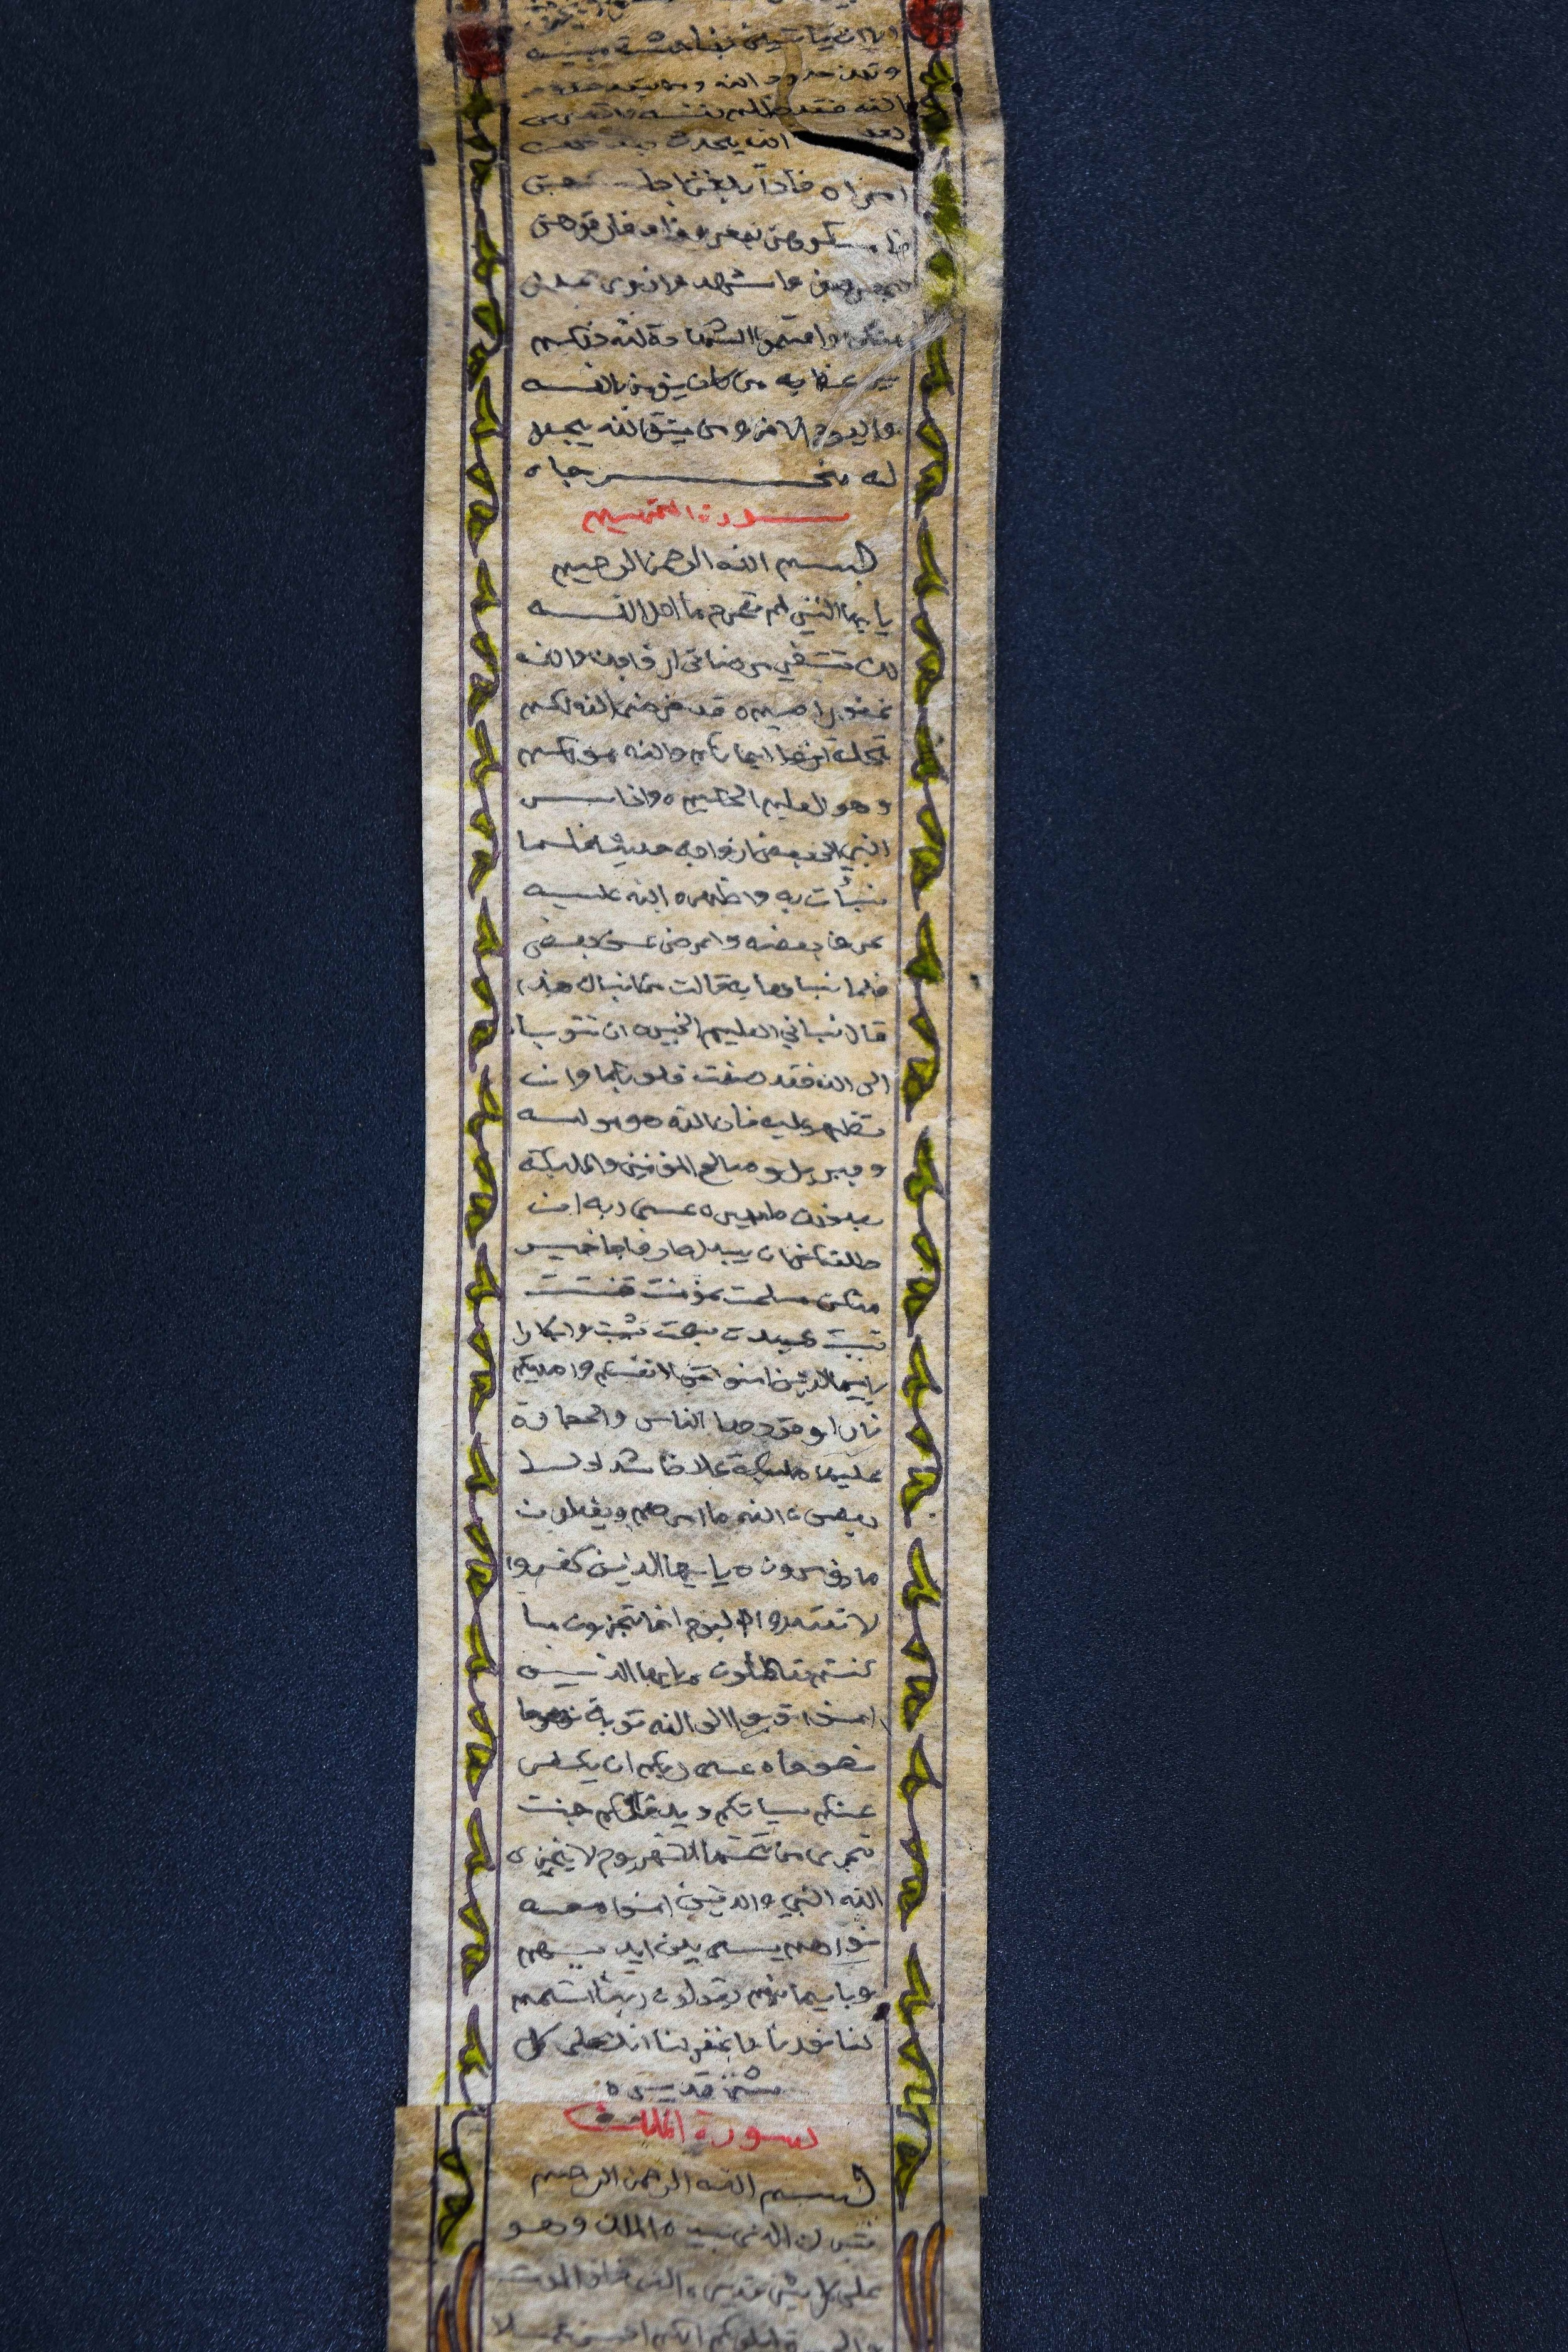 الا ان ياتين بفاحشة مبينه
وتلك حدود الله ومن يتعد حدود
الله فقد ظلم نفسه لا تدرى
لعل الله يحدث بعد ذلك
امراه فاذا بلغن اجلهن
فامسكوهن بمعروف او فارقوهن
بمعروف واشهدوا ذوى عدل
منكم واقيموا الشهادة لله ذلكم
يوعظ به من كان يؤمن بالله
واليوم الاخر ومن يتق الله يجعل
له مخرجا ه
سورة التحريم
بسم الله الرحمن الرحيم
يا ايها النبي لم تحرم ما احل الله
لك تبتغي مرضاتى ازواجك والله
غفور رحيم ه قد فرض الله لكم
تحلة ايمانكم والله موليكم
وهو العليم الحكيم ه واذا سر
النبي الى بعض ازواجه حديثا فلما
نبأت به واظهره الله عليه
عرف بعضه واعرض عن بعض
فلما نباها به قالت من انباك هذا
قال نباني العليم الخبير ه ان تتوبا
الى الله فقد صغت قلوبكما وان
تظهر عليه فان الله هو موليه
وجبريل وصالح المؤمنين والمليكة
بعد ذلك ظهير ه عسى ربه ان
طلقكن ان يبدله ازواجا خير
منكن مسلمت مؤمنت قنتت
تيبت عبدت سيحت ثيبت وابكارا
يايها الذين امنوا قوا انفسكم واهليكم
نارا وقودها الناس والحجارة
عليها مليكة غلاظ شداد لا
يعصون الله ما امرهم ويفعلون
ما يؤمرون ه يا ايها الذين كفروا
لا تعتذروا اليوم انما تجزون ما
كنتم تعملون يا ايها الذين
امنوا توبوا الى الله توبة نصوحا
نصوحا ه عسى ربكم ان يكفر
عنكم سياتكم ويدخلكم جنت
تجرى من تحتها الانهر يوم لا يخزى
الله النبي والذين امنوا معه
نورهم يسعى بين ايديهم
وبايمانهم يقولون ربنا اتمم
لنا نورنا واغفر لنا انك على كل
شئ قدير ه
سورة الملك
بسم الله الرحمن الرحيم
تبرك الذى بيده الملك وهو
على كل شئ قدير ه الذى خلق الموت
والحيوة ليبلوكم ايكم احسن عملا